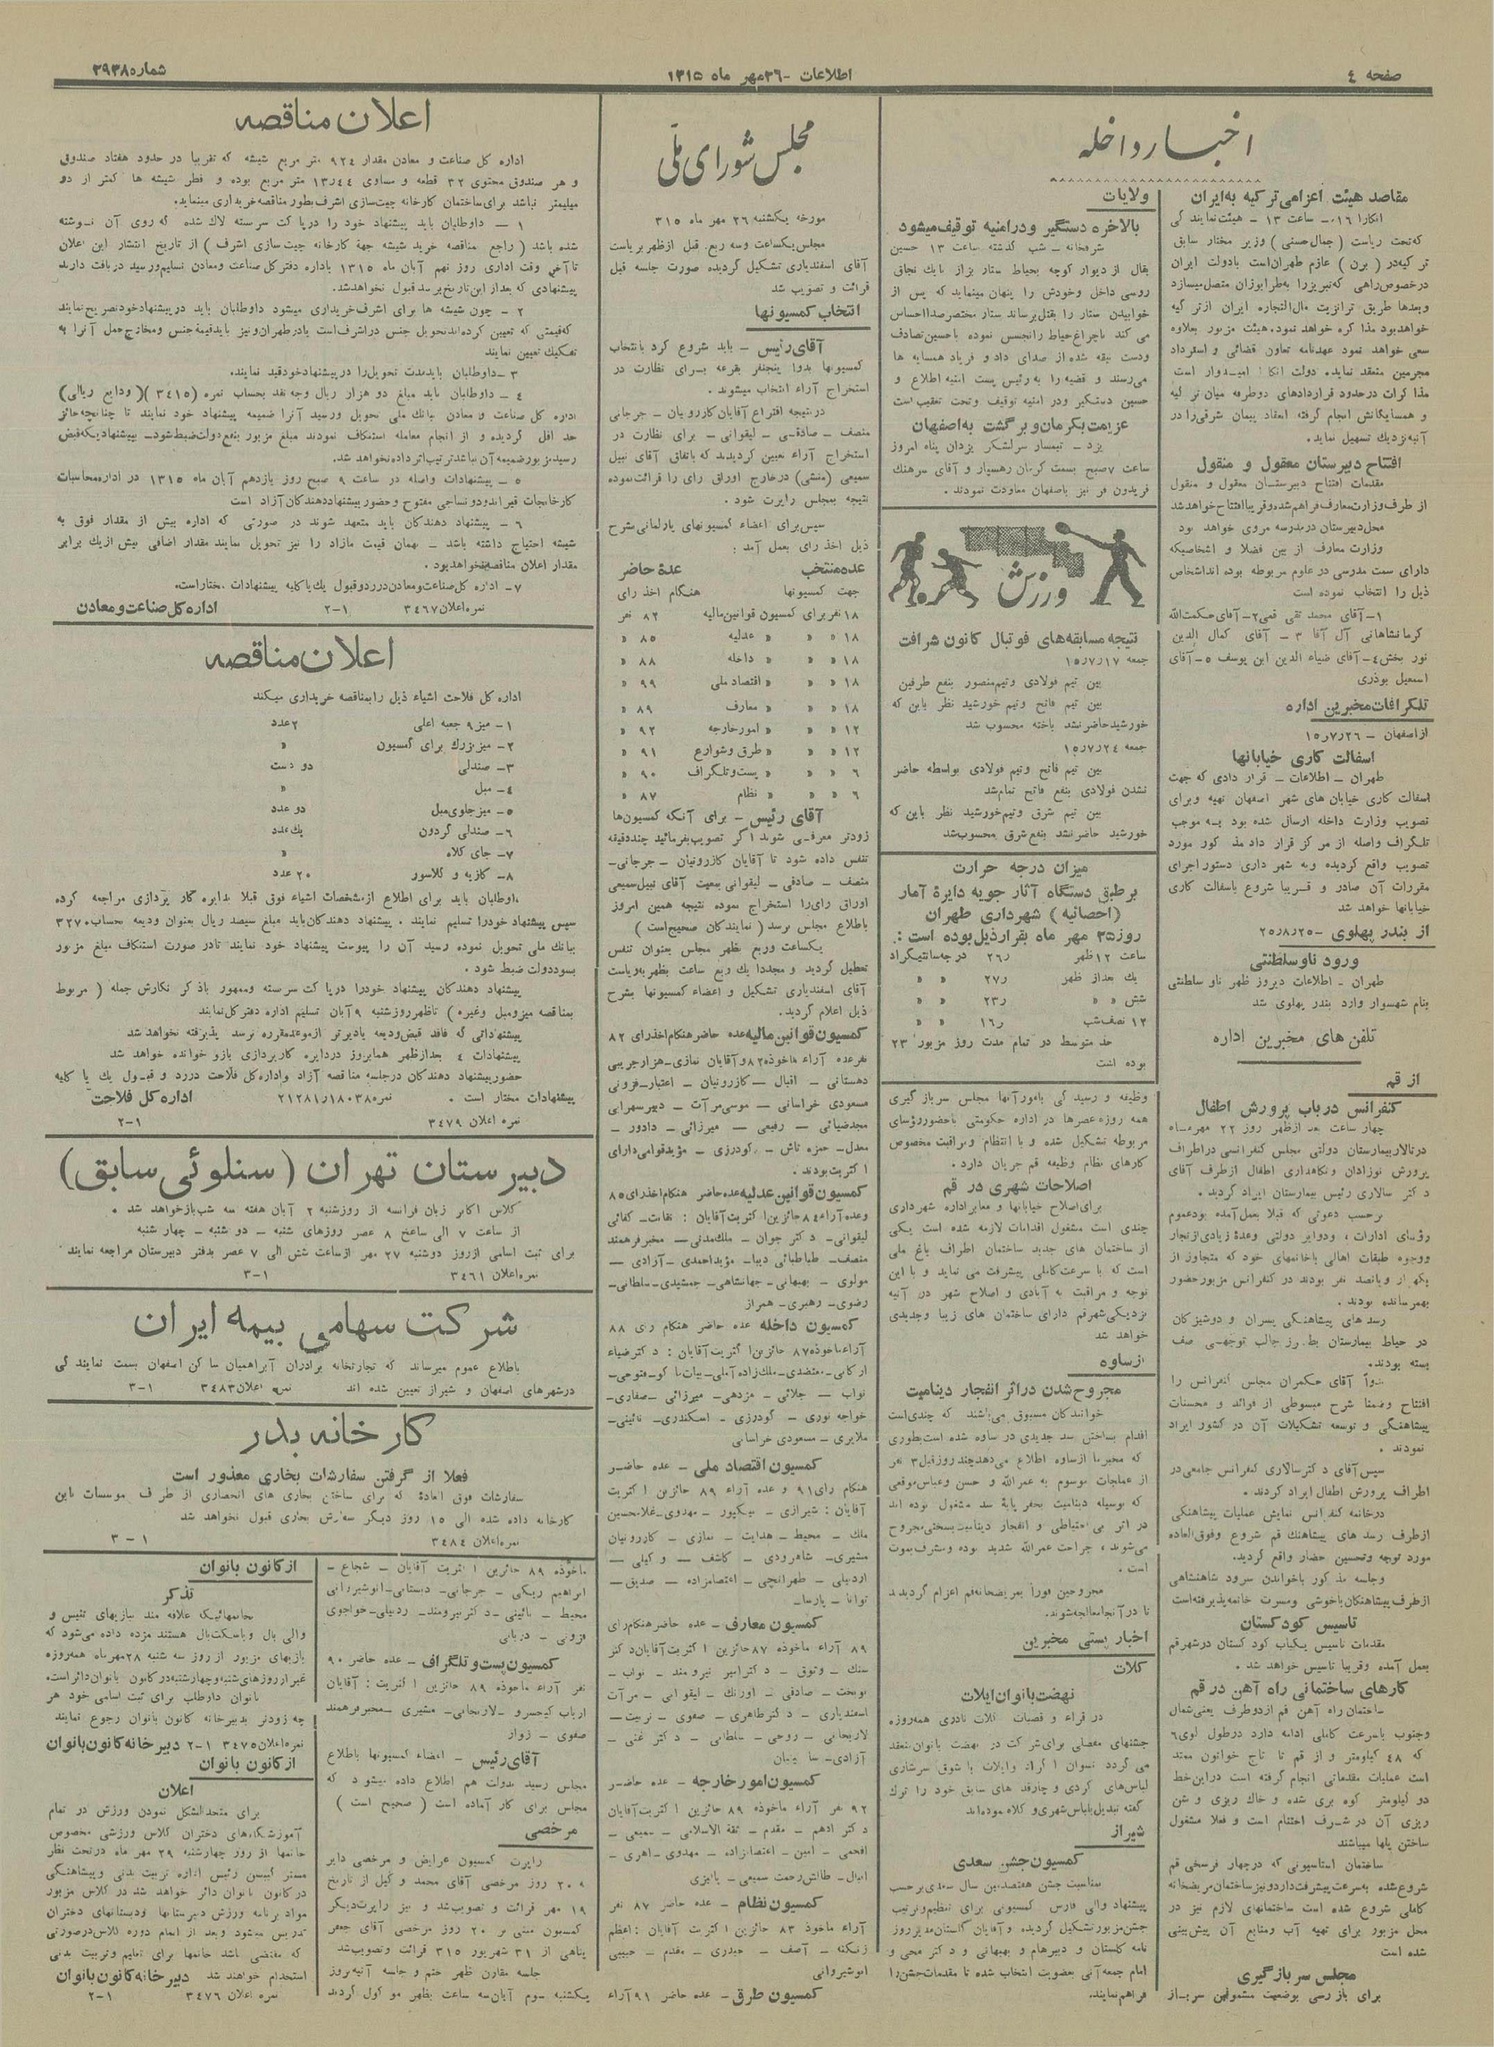 صفحه ٤
اطلاعات -۲٦مهر ماه ۱۳۱۵
شماره۲۹۳۸
اخبار داخله
مقاصد هیئت اعزامی ترکیه به ایران
انکارا ۱٦- ساعت ۱۳ - هیئت نمایندگی
که تحت ریاست (جمال حسنی) وزیر مختار سابق
ترکیه در (برن) عازم طهران است با دولت ایران
در خصوص راهی که تبریز را به طرابوزان متصل میسازد
و بعدها طریق ترانزیت مال التجاره ایران از ترکیه
خواهد بود مذاکره خواهد نمود. هیئت مزبور بعلاوه
سعی خواهد نمود عهدنامه تعاون قضائی و استرداد
مجرمین منعقد نماید. دولت امیدوار است
مذاکرات در حدود قراردادهای دوطرفه میان ترکیه
و همسایگانش انجام گرفته انعقاد پیمان شرقی را در
آتیه نزدیک تسهیل نماید.
افتتاح دبیرستان معقول و منقول
مقدمات افتتاح دبیرستان معقول و منقول
از طرف وزارت معارف فراهم شده و قریبا افتتاح خواهد شد
محل دبیرستان در مدرسه مروی خواهد بود
وزارت معارف از بین فضلا و اشخاصیکه
دارای سمت مدرسی در علوم مربوطه بوده اند اشخاص
ذیل را انتخاب نموده است
۱- آقای محمد تقی قمی ۲- آقای حکمت الله
کرمانشاهانی آل آقا ۳ - آقای کمال الدین
نور بخش ٤- آقای ضیاء الدین ابن یوسف ۵- آقای
اسمعیل بوذری
تلگرافات مخبرین اداره
از اصفهان - ۱۵٫۷٫۲٦
اسفالت کاری خیابانها
طهران - اطلاعات - قرار دادی که جهت
اسفالت کاری خیابان های شهر اصفهان تهیه و برای
تصویب وزارت داخله ارسال شده بود به موجب
تلگراف واصله از مرکز قرار داد مذکور مورد
تصویب واقع گردیده و به شهرداری دستور اجرای
مقررات آن صادر و قریبا شروع باسفالت کاری
خیابانها خواهد شد
از بندر پهلوی -۲۵٫۸٫۲۵
ورود ناو سلطنتی
طهران - اطلاعات دیروز ظهر ناو سلطنتی
بنام شهسوار وارد بندر پهلوی شد
تلفن های مخبرین اداره
از قم
کنفرانس در باب پرورش اطفال
چهار ساعت بعد از ظهر روز ۲۲ مهر ماه
در تالار بیمارستان دولتی مجلس کنفرانسی در اطراف
پرورش نوزادان و نگاهداری اطفال از طرف آقای
دکتر سالاری رئیس بیمارستان ایراد گردید.
برحسب دعوتی که قبلا بعمل آمده بود عموم
رؤسای ادارات، و دوایر دولتی وعدهٔ زیادی از تجار
و وجوه طبقات اهالی با خانمهای خود که متجاوز از
یکهزار و پانصد نفر بودند در کنفرانس مزبور حضور
بهمرسانده بودند.
رسد های پیشاهنگی پسران و دوشیزگان
در حیاط بیمارستان بطرز جالب توجهی صف
بسته بودند.
بدواً آقای حکمران مجلس کنفرانس را
افتتاح و ضمنا شرح مبسوطی از فوائد و محسنات
پیشاهنگی و توسعه تشکیلات آن در کشور ایراد
نمودند.
سپس آقای دکتر سالاری کنفرانس جامعی در
اطراف پرورش اطفال ایراد کردند.
در خاتمه کنفرانس نمایش عملیات پیشاهنگی
از طرف رسد های پیشاهنگ قم شروع و فوق العاده
مورد توجه و تحسین حضار واقع گردید.
و جلسه مذکور با خواندن سرود شاهنشاهی
از طرف پیشاهنگان باخوشی و مسرت خاتمه پذیرفته است
تاسیس کودکستان
مقدمات تاسیس یکباب کودکستان در شهر قم
بعمل آمده و قریبا تاسیس خواهد شد.
کارهای ساختمانی راه آهن در قم
ساختمان راه آهن قم از دو طرف یعنی شمال
و جنوب با سرعت کاملی ادامه دارد در طول لوی ٦
که ٤۸ کیلومتر و از قم تا تاج خواتون ممتد
است عملیات مقدماتی انجام گرفته است در این خط
دو کیلومتر کوه بری شده و خاک ریزی و شن
ریزی آن در شرف اختتام است و فعلا مشغول
ساختن پلها میباشند
ساختمان استاسیونی که در چهار فرسخی قم
شروع شده به سرعت پیشرفت دارد و نیز ساختمان مریضخانه
کاملی شروع شده است ساختمانهای لازم نیز در
محل مزبور برای تهیه آب و منابع آن پیش بینی
شده است
مجلس سربازگیری
برای بازرسی بوضعیت مشمولین سرباز
ولایات
بالاخره دستگیر و در امنیه توقیف میشود
شرفخانه - شب گذشته ساعت ۱۳ حسین
بقال از دیوار کوچه بحیاط ستار بزاز با یک تپانچه
روسی داخل و خودش را پنهان مینماید که پس از
خوابیدن ستار را بقتل برساند ستار مختصر صدا احساس
می کند با چراغ حیاط را تجسس نموده با حسین تصادف
و دست بیقه شده از صدای داد و فریاد همسایه ها
می رسند و قضیه را به رئیس پست امنیه اطلاع و
حسین دستگیر و در امنیه توقیف و تحت تعقیب است
عزیمت بکرمان و برگشت به اصفهان
یزد - تیمسار سرلشکر یزدان پناه امروز
ساعت ۷ صبح بسمت کرمان رهسپار و آقای سرهنگ
فریدون فر نیز باصفهان معاودت نمودند.
ورزش
نتیجه مسابقه های فوتبال کانون شرافت
جمعه ۱۵٫۷٫۱۷
بین تیم فولادی و تیم منصور بنفع طرفین
بین تیم فاتح و تیم خورشید نظر باین که
خورشید حاضر نشد باخته محسوب شد
جمعه ۱۵٫۷٫۲٤
بین تیم فاتح و تیم فولادی بواسطه حاضر
نشدن فولادی بنفع فاتح تمام شد
بین تیم شرق و تیم خورشید نظر باین که
خورشید حاضر نشد بنفع شرق محسوب شد
میزان درجه حرارت
برطبق دستگاه آثار جویه دایرة آمار
(احصائیه) شهرداری طهران
روز ۲۵ مهر ماه بقرار ذیل بوده است:
ساعت ۱۲ ظهر ۲٦٫ درجه سانتیگراد
یک بعد از ظهر ۲۷٫ » »
شش » » ۲۳٫ » »
۱۲ نصف شب ۱٦٫ » »
حد متوسط در تمام مدت روز مزبور ۲۳
بوده است
وظیفه و رسیدگی بامور آنها مجلس سربازگیری
همه روزه عصرها در اداره حکومتی با حضور رؤسای
مربوطه تشکیل شده و با انتظام و مراقبت مخصوص
کارهای نظام وظیفه قم جریان دارد.
اصلاحات شهری در قم
برای اصلاح خیابانها و معابر اداره شهرداری
چندی است مشغول اقدامات لازمه شده است یکی
از ساختمان های جدید ساختمان اطراف باغ ملی
است که با سرعت کاملی پیشرفت می نماید و با این
توجه و مراقبت به آبادی و اصلاح شهر در آتیه
نزدیکی شهر قم دارای ساختمان های زیبا و جدیدی
خواهد شد
از ساوه
مجروح شدن در اثر انفجار دینامیت
خوانندگان مسبوق می باشند که چندی است
اقدام بساختن سد جدیدی در ساوه شده است بطوری
که مخبر ما از ساوه اطلاع می دهد چند روز قبل ۳ نفر
از عملجات موسوم به عمرالله و حسن و عباس موقعی
که بوسیله دینامیت بحفر پایهٔ سد مشغول بوده اند
در اثر بی احتیاطی و انفجار دینامیت بسختی مجروح
می شوند، جراحت عمرالله شدید بوده و مشرف بموت
است.
مجروحین فوراً بمریضخانه قم اعزام گردیدند
تا در آنجا معالجه شوند.
اخبار پستی مخبرین
کلات
نهضت بانوان ایلات
در قراء و قصبات کلات نادری همه روزه
جشنهای مفصلی برای شرکت در نهضت بانوان منعقد
می گردد نسوان اکراد و ایلات با شوق سرشاری
لباس های کردی و چارقد های سابق خود را ترک
گفته تبدیل بلباس شهری و کلاه نموده اند
شیراز
کمیسیون جشن سعدی
بمناسبت جشن هفتصدمین سال سعدی برحسب
پیشنهاد والی فارس کمیسیونی برای تنظیم و ترتیب
جشن مزبور تشکیل گردیده و آقایان گلستان مدیر روز
نامه گلستان و دبیر هام و بهبهانی و دکتر محی و
امام جمعه آنی بعضویت انتخاب شده تا مقدمات جشن را
فراهم نمایند.
مجلس شورای ملّی
مورخه یکشنبه ۲٦ مهر ماه ۳۱۵
مجلس یکساعت و سه ربع قبل از ظهر بریاست
آقای اسفندیاری تشکیل گردیده صورت جلسه قبل
قرائت و تصویب شد
انتخاب کمسیونها
آقای رئیس - باید شروع کرد بانتخاب
کمسیونها بدوا پنجنفر بقرعه برای نظارت در
استخراج آراء انتخاب میشوند.
در نتیجه اقتراع آقایان کازرونیان - جرجانی
منصف - صادقی - لیقوانی - برای نظارت در
استخراج آراء معین گردیدند که باتفاق آقای نبیل
سمیعی (منشی) در خارج اوراق رای را قرائت نموده
نتیجه بمجلس راپرت شود.
سپس برای اعضاء کمسیونهای پارلمانی بشرح
ذیل اخذ رای بعمل آمد:
عده منتخب عدة حاضر
جهت کمسیونها هنگام اخذ رای
۱۸ نفر برای کمسیون قوانین مالیه ۸۲ نفر
۱۸ » » » عدلیه ۸۵ »
۱۸ » » » داخله ۸۸ »
۱۸ » » » اقتصاد ملی ۹۹ »
۱۸ » » » معارف ۸۹ »
۱۲ » » » امور خارجه ۹۲ »
۱۲ » » » طرق و شوارع ۹۱ »
٦ » » » پست و تلگراف ۹۰ »
٦ » » » نظام ۸۷ »
آقای رئیس - برای آنکه کمسیونها
زودتر معرفی شوند اگر تصویب بفرمائید چند دقیقه
تنفس داده شود تا آقایان کازرونیان - جرجانی-
منصف - صادقی - لیقوانی بمعیت آقای نبیل سمیعی
اوراق رای را استخراج نموده نتیجه همین امروز
باطلاع مجلس برسد (نمایندگان صحیح است)
یکساعت و ربع ظهر مجلس بعنوان تنفس
تعطیل گردید و مجددا یک ربع ساعت بظهر بریاست
آقای اسفندیاری تشکیل و اعضاء کمسیونها بشرح
ذیل اعلام گردید.
کمسیون قوانین مالیه عده حاضر هنگام اخذ رای ۸۲
نفر عده آراء ماخوذه ۸۲ و آقایان نمازی- هزار جریبی
دهستانی - اقبال - کازرونیان - اعتبار - فزونی
مسعودی خراسانی - موسی مرآت - دبیر سهرابی
مجد ضیائی - رفیعی - میرزائی - دادور -
معدل - حمزه تاش - گودرزی - مؤید قوامی دارای
اکثریت بودند.
کمسیون قوانین عدلیه عده حاضر هنگام اخذ رای ۸۵
و عده آراء ۸٤ حائزین اکثریت آقایان: نقابت- کفائی
لیقوانی - دکتر جوان - ملک مدنی - مخبر فرهمند
منصف - طباطبائی دیبا - مؤید احمدی - آزادی -
مولوی - بهبهانی - جهانشاهی - جمشیدی - سلطانی-
رضوی - رهبری - همراز
کمسیون داخله عده حاضر هنگام رای ۸۸
آراء ماخوذه ۸۷ حائزین اکثریت آقایان: دکتر ضیاء
ارگانی - معتضدی - ملک زاده آملی - بیات ماکو - فتوحی-
نواب - جلائی - مژدهی - میرزائی - صفاری-
خواجه نوری - گودرزی - اسکندری - نائینی-
ملایری - مسعودی خراسانی
کمسیون اقتصاد ملی - عده حاضر
هنگام رای ۹۱ و عده آراء ۸۹ حائزین اکثریت
آقایان: شیرازی - نیکپور - مهدوی - غلامحسین
ملک - محیط - هدایت - نمازی - کازرونیان
مشیری - شاهرودی - کاشف - وکیلی -
اردبیلی - طهرانچی - اعتصام زاده - صدیق -
توانا - پارسا.
کمسیون معارف - عده حاضر هنگام رای
۸۹ آراء ماخوذه ۸۷ حائزین اکثریت آقایان دکتر
سنگ - وثوق - دکتر امیر نیرومند - نواب -
نوبخت - صادقی - اورنگ - لیقوانی - مرآت
اسفندیاری - دکتر طاهری - صفوی - تربیت -
لاریجانی - روحی - سلطانی - دکتر غنی -
آزادی - ساسان
کمسیون امور خارجه - عده حاضر
۹۲ نفر آراء ماخوذه ۸۹ حائزین اکثریت آقایان
دکتر ادهم - مقدم - ثقة الاسلامی - سمیعی -
افخمی - امین - اعتصام زاده - مهدوی - اهری -
امثال - طالش رحمت سمیعی - پالیزی
کمسیون نظام - عده حاضر ۸۷ نفر
آراء ماخوذ ۸۳ حائزین اکثریت آقایان: اعظم
زنگنه - آصف - حیدری - مقدم - حبیبی
انوشیروانی
کمسیون طرق - عده حاضر ۹۱ آراء
ماخوذه ۸۹ حائزین اکثریت آقایان - شجاع -
ابراهیم ریگی - جرجانی - دبستانی - انوشیروانی
محیط - نائینی - دکتر نیرومند - اردبیلی - خواجوی
فزونی - دربانی
کمسیون پست و تلگراف - عده حاضر ۹۰
نفر آراء ماخوذه ۸۹ حائزین اکثریت: آقایان
ارباب کیخسرو - لاریجانی - مشیری - مخبر فرهمند
صفوی - زوار
آقای رئیس - اعضاء کمسیونها باطلاع
مجلس رسید بدولت هم اطلاع داده میشود که
مجلس برای کار آماده است (صحیح است)
مرخصی
راپرت کمسیون عرایض و مرخصی دایر
به ۲۰ روز مرخصی آقای محمد وکیل از تاریخ
۱۹ مهر قرائت و تصویب شد و نیز راپرت دیگر
کمسیون مبنی بر ۲۰ روز مرخصی آقای جعفر
پناهی از ۳۱ شهریور ۳۱۵ قرائت و تصویب شد
جلسه مقارن ظهر ختم و جلسه آتیه روز
یکشنبه سوم آبان سه ساعت بظهر موکول گردید
اعلان مناقصه
اداره کل صناعت و معادن مقدار ۹۲٤ متر مربع شیشه که تقریبا در حدود هفتاد صندوق
و هر صندوق محتوی ۳۲ قطعه و مساوی ۱۳٫٤٤ متر مربع بوده و قطر شیشه ها کمتر از دو
میلیمتر نباشد برای ساختمان کارخانه چیت سازی اشرف بطور مناقصه خریداری مینماید.
۱ - داوطلبان باید پیشنهاد خود را در پاکت سربسته لاک شده که روی آن نوشته
شده باشد (راجع مناقصه خرید شیشه جهة کارخانه چیت سازی اشرف) از تاریخ انتشار این اعلان
تا آخر وقت اداری روز نهم آبان ماه ۱۳۱۵ باداره دفتر کل صناعت و معادن تسلیم و رسید دریافت دارند
پیشنهادی که بعد از این تاریخ برسد قبول نخواهد شد.
۲ - چون شیشه ها برای اشرف خریداری میشود داوطلبان باید در پیشنهاد خود تصریح نمایند
که قیمتی که تعیین کرده اند تحویل جنس در اشرف است یا در طهران و نیز باید قیمة جنس و مخارج حمل آنرا به
تفکیک تعیین نمایند
۳ - داوطلبان باید مدت تحویل را در پیشنهاد خود قید نمایند.
٤ - داوطلبان باید مبلغ دو هزار ریال وجه نقد بحساب نمره (۳٤۱۵)(ودایع ریالی)
اداره کل صناعت و معادن ببانک ملی تحویل و رسید آنرا ضمیمه پیشنهاد خود نمایند تا چنانچه حائز
حد اقل گردیده و از انجام معامله استنکاف نمودند مبلغ مزبور بنفع دولت ضبط شود - پیشنهادیکه قبض
رسید مزبور ضمیمه آن نباشد ترتیب اثر داده نخواهد شد.
۵ - پیشنهادات واصله در ساعت ۹ صبح روز یازدهم آبان ماه ۱۳۱۵ در اداره محاسبات
کارخانجات قیر اندود و نساجی مفتوح و حضور پیشنهاد دهندگان آزاد است
٦ - پیشنهاد دهندگان باید متعهد شوند در صورتی که اداره بیش از مقدار فوق به
شیشه احتیاج داشته باشد - بهمان قیمت مازاد را نیز تحویل نمایند مقدار اضافی بیش از یک برابر
مقدار اعلان مناقصه نخواهد بود.
۷ - اداره کل صناعت و معادن در رد و قبول یک یا کلیه پیشنهادات مختار است.
نمره اعلان ۳٤٦۷ ۱-۲ اداره کل صناعت و معادن
اعلان مناقصه
اداره کل فلاحت اشیاء ذیل را بمناقصه خریداری میکند
۱- میز ۹ جعبه اعلی ۲ عدد
۲- میز بزرگ برای کمسیون »
۳- صندلی دو دست
٤- مبل »
۵- میز جلوی مبل دو عدد
٦- صندلی گردون یک عدد
۷- جای کلاه »
۸- کازیه و کلاسور ۲۰ عدد
داوطلبان باید برای اطلاع از مشخصات اشیاء فوق قبلا بدایره کارپردازی مراجعه کرده
سپس پیشنهاد خود را تسلیم نمایند. پیشنهاد دهندگان باید مبلغ سیصد ریال بعنوان ودیعه بحساب ۳۲۷۰
ببانک ملی تحویل نموده رسید آن را پیوست پیشنهاد خود نمایند تا در صورت استنکاف مبلغ مزبور
بسود دولت ضبط شود.
پیشنهاد دهندگان پیشنهاد خود را در پاکت سربسته و ممهور با ذکر نگارش جمله (مربوط
بمناقصه میز و مبل و غیره) تا ظهر روز شنبه ۹ آبان تسلیم اداره دفتر کل نمایند
پیشنهاداتی که فاقد قبض ودیعه یا دیرتر از موعد مقرره برسد پذیرفته نخواهد شد
پیشنهادات ٤ بعد از ظهر همانروز در دایره کارپردازی باز و خوانده خواهد شد
حضور پیشنهاد دهندگان در جلسه مناقصه آزاد و اداره کل فلاحت در رد و قبول یک یا کلیه
پیشنهادات مختار است. نمره ۲۱۲۸۱٫۱۸۰۳۸ اداره کل فلاحت
نمره اعلان ۳٤۷۹ ۱-۲
دبیرستان تهران (سنلوئی سابق)
کلاس اکابر زبان فرانسه از روز شنبه ۲ آبان هفته سه شب باز خواهد شد.
از ساعت ۷ الی ساعت ۸ عصر روزهای شنبه - دو شنبه - چهار شنبه
برای ثبت اسامی از روز دوشنبه ۲۷ مهر از ساعت شش الی ۷ عصر بدفتر دبیرستان مراجعه نمایند
نمره اعلان ۳٤٦۱ ۱-۳
شرکت سهامی بیمه ایران
باطلاع عموم میرساند که تجارتخانه برادران آبراهمیان ساکن اصفهان بسمت نمایندگی
در شهرهای اصفهان و شیراز تعیین شده اند نمره اعلان ۳٤۸۳ ۱-۳
کارخانه بدر
فعلا از گرفتن سفارشات بخاری معذور است
سفارشات فوق العادهٔ که برای ساختن بخاری های انحصاری از طرف موسسات باین
کارخانه داده شده الی ۱۵ روز دیگر سفارش بخاری قبول نخواهد شد
نمره اعلان ۳٤۸٤ ۱ - ۳
از کانون بانوان
تذکر
بخانمهائیکه علاقه مند ببازیهای تنیس و
والی بال و باسکت بال هستند مژده داده می شود که
بازیهای مزبور از روز سه شنبه ۲۸ مهر ماه همه روزه
غیر از روزهای شنبه و چهار شنبه در کانون بانوان دائر است.
بانوان داوطلب برای ثبت اسامی خود هر
چه زودتر بدبیرخانه کانون بانوان رجوع نمایند
نمره اعلان ۳٤۷۵ ۱-۲ دبیرخانه کانون بانوان
از کانون بانوان
اعلان
برای متحدالشکل نمودن ورزش در تمام
آموزشگاه های دختران کلاس ورزشی مخصوص
خانمها از روز چهارشنبه ۲۹ مهر ماه در تحت نظر
مستر گیبسن رئیس اداره تربیت بدنی و پیشاهنگی
در کانون بانوان دائر خواهد شد در کلاس مزبور
مواد برنامه ورزش دبیرستانها و دبستانهای دختران
تدریس میشود و بعد از اتمام دوره کلاس در صورتی
که مقتضی باشد خانمها برای تعلیم و تربیت بدنی
استخدام خواهند شد دبیرخانه کانون بانوان
نمره اعلان ۳٤۷٦ ۱-۲